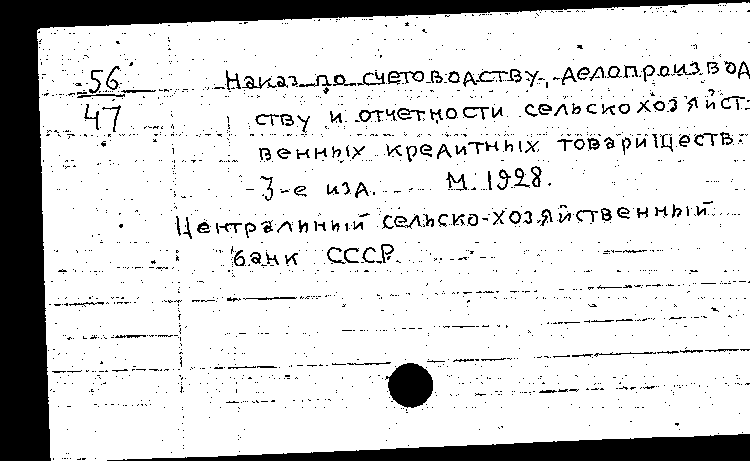 56
47
Наказ по счетоводству, делопроизвод
ству и отчетности сельскохозяйст-
венных кредитных товариществ.
3-е изд. М. 1928.
Центральный сельско-хозяйственный
банк СССР.